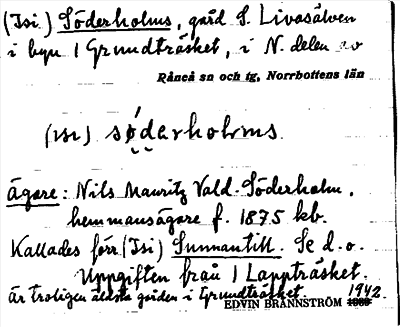 (Isi) Söderholms, gård S. Livasälven
i byn 1 Grundträsket, i N. delen av
Råneå sn och tg, Norrbottens län
(ısı) sǿdərholms.
ägare: Nils Mauritz Vald. Söderholm,
hemmansägare f. 1875 kb.
Kallades förr (Isi) Sunnantill. Se d.o.
Uppgiften från 1 Lappträsket.
är troligen äldsta gården i Grundträsket.
EDVIN BRÄNNSTRÖM 1942.